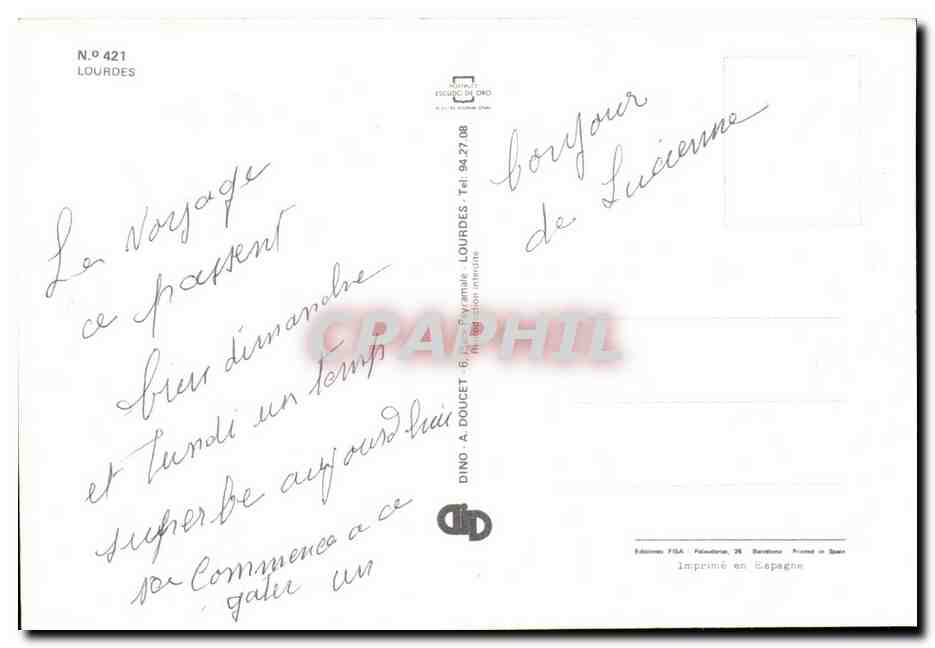 N.º 421
LOURDES
Le Voyage
ce passent
bien dimanche
et lundi un temp
superbe aujourd'hui
sa commence a ce
gater un
bonjour
de Lucienne
ESCUDO DE ORO
DINO - A. DOUCET - 6, Peyramale - LOURDES - Tel: 94.27.08
Reproduction interdite
CPAPHIL
Ediciones FISA - Palaudarias, 26 - Barcelona - Printed in Spain
Imprimé en Espagne